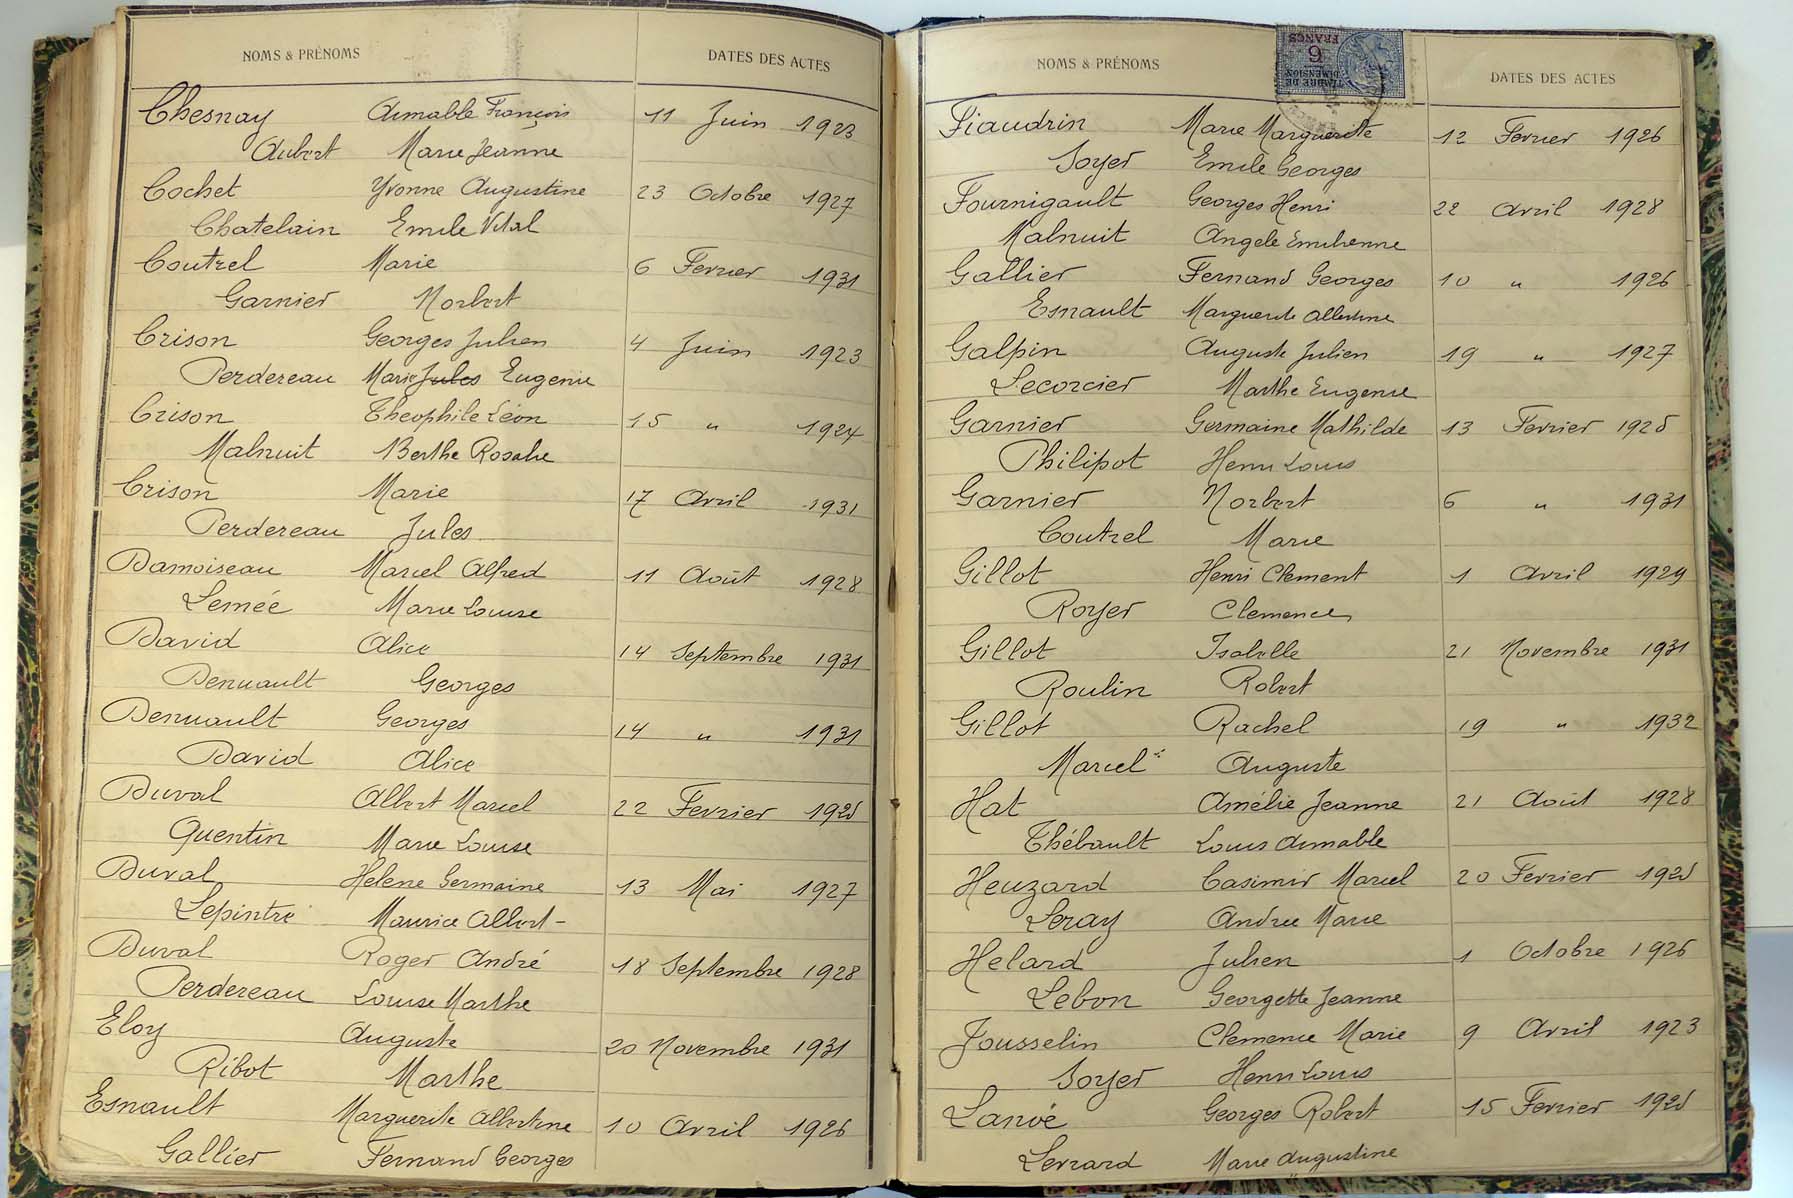 NOMS & PRÉNOMS DATES DES ACTES
Chesnay Aimable François 11 Juin 1923
Aubert Marie Jeanne
Cochet Yvonne Augustine 23 Octobre 1927
Chatelain Emile Vital
Coutrel Marie 6 Fevrier 1931
Garnier Norbert
Crison Georges Julien 4 Juin 1923
Perdereau Marie Jules Eugenie
Crison Theophile Léon 15 " 1924
Malnuit Berthe Rosalie
Crison Marie 17 Avril 1931
Perdereau Jules
Damoiseau Marcel Alfred 11 Août 1928
Lemée Marie Louise
David Alice 14 Septembre 1931
Denuault Georges
Denuault Georges 14 " 1931
David Alice
Duval Albert Marcel 22 Fevrier
Quentin Marie Louise
Duval Helene Germaine 13 Mai 1927
Lepintre Maurice Albert
Duval Roger André 18 Septembre 1928
Perdereau Louise Marthe
Eloy Auguste 20 Novembre 1931
Ribot Marthe
Esnault Marguerite Albertine 10 Avril 1926
Gallier Fernand Georges
NOMS & PRÉNOMS DATES DES ACTES
TIMBRE DE
DIMENSION
6
FRANCS
Fiaudrin Marie Marguerite 12 Fevrier 1926
Soyer Emile Georges
Fournigault Georges Henri 22 Avril 1928
Malnuit Angele Emilienne
Gallier Fernand Georges 10 " 1926
Esnault Marguerite Albertine
Galpin Auguste Julien 19 " 1927
Lecorcier Marthe Eugenie
Garnier Germaine Mathilde 13 Fevrier
Philipot Henri Louis
Garnier Norbert 6 " 1931
Coutrel Marie
Gillot Henri Clement 1 Avril 1929
Royer Clemence
Gillot Isabelle 21 Novembre 1931
Roulin Robert
Gillot Rachel 19 " 1932
Marcel Auguste
Hat Amélie Jeanne 21 Août 1928
Thébault Louis Aimable
Heuzard Casimir Marcel 20 Fevrier
Leray Andree Marie
Helard Julien 1 Octobre 1926
Lebon Georgette Jeanne
Jousselin Clemence Marie 9 Avril 1923
Soyer Henri Louis
Lanoé Georges Robert 15 Fevrier
Levrard Marie Augustine